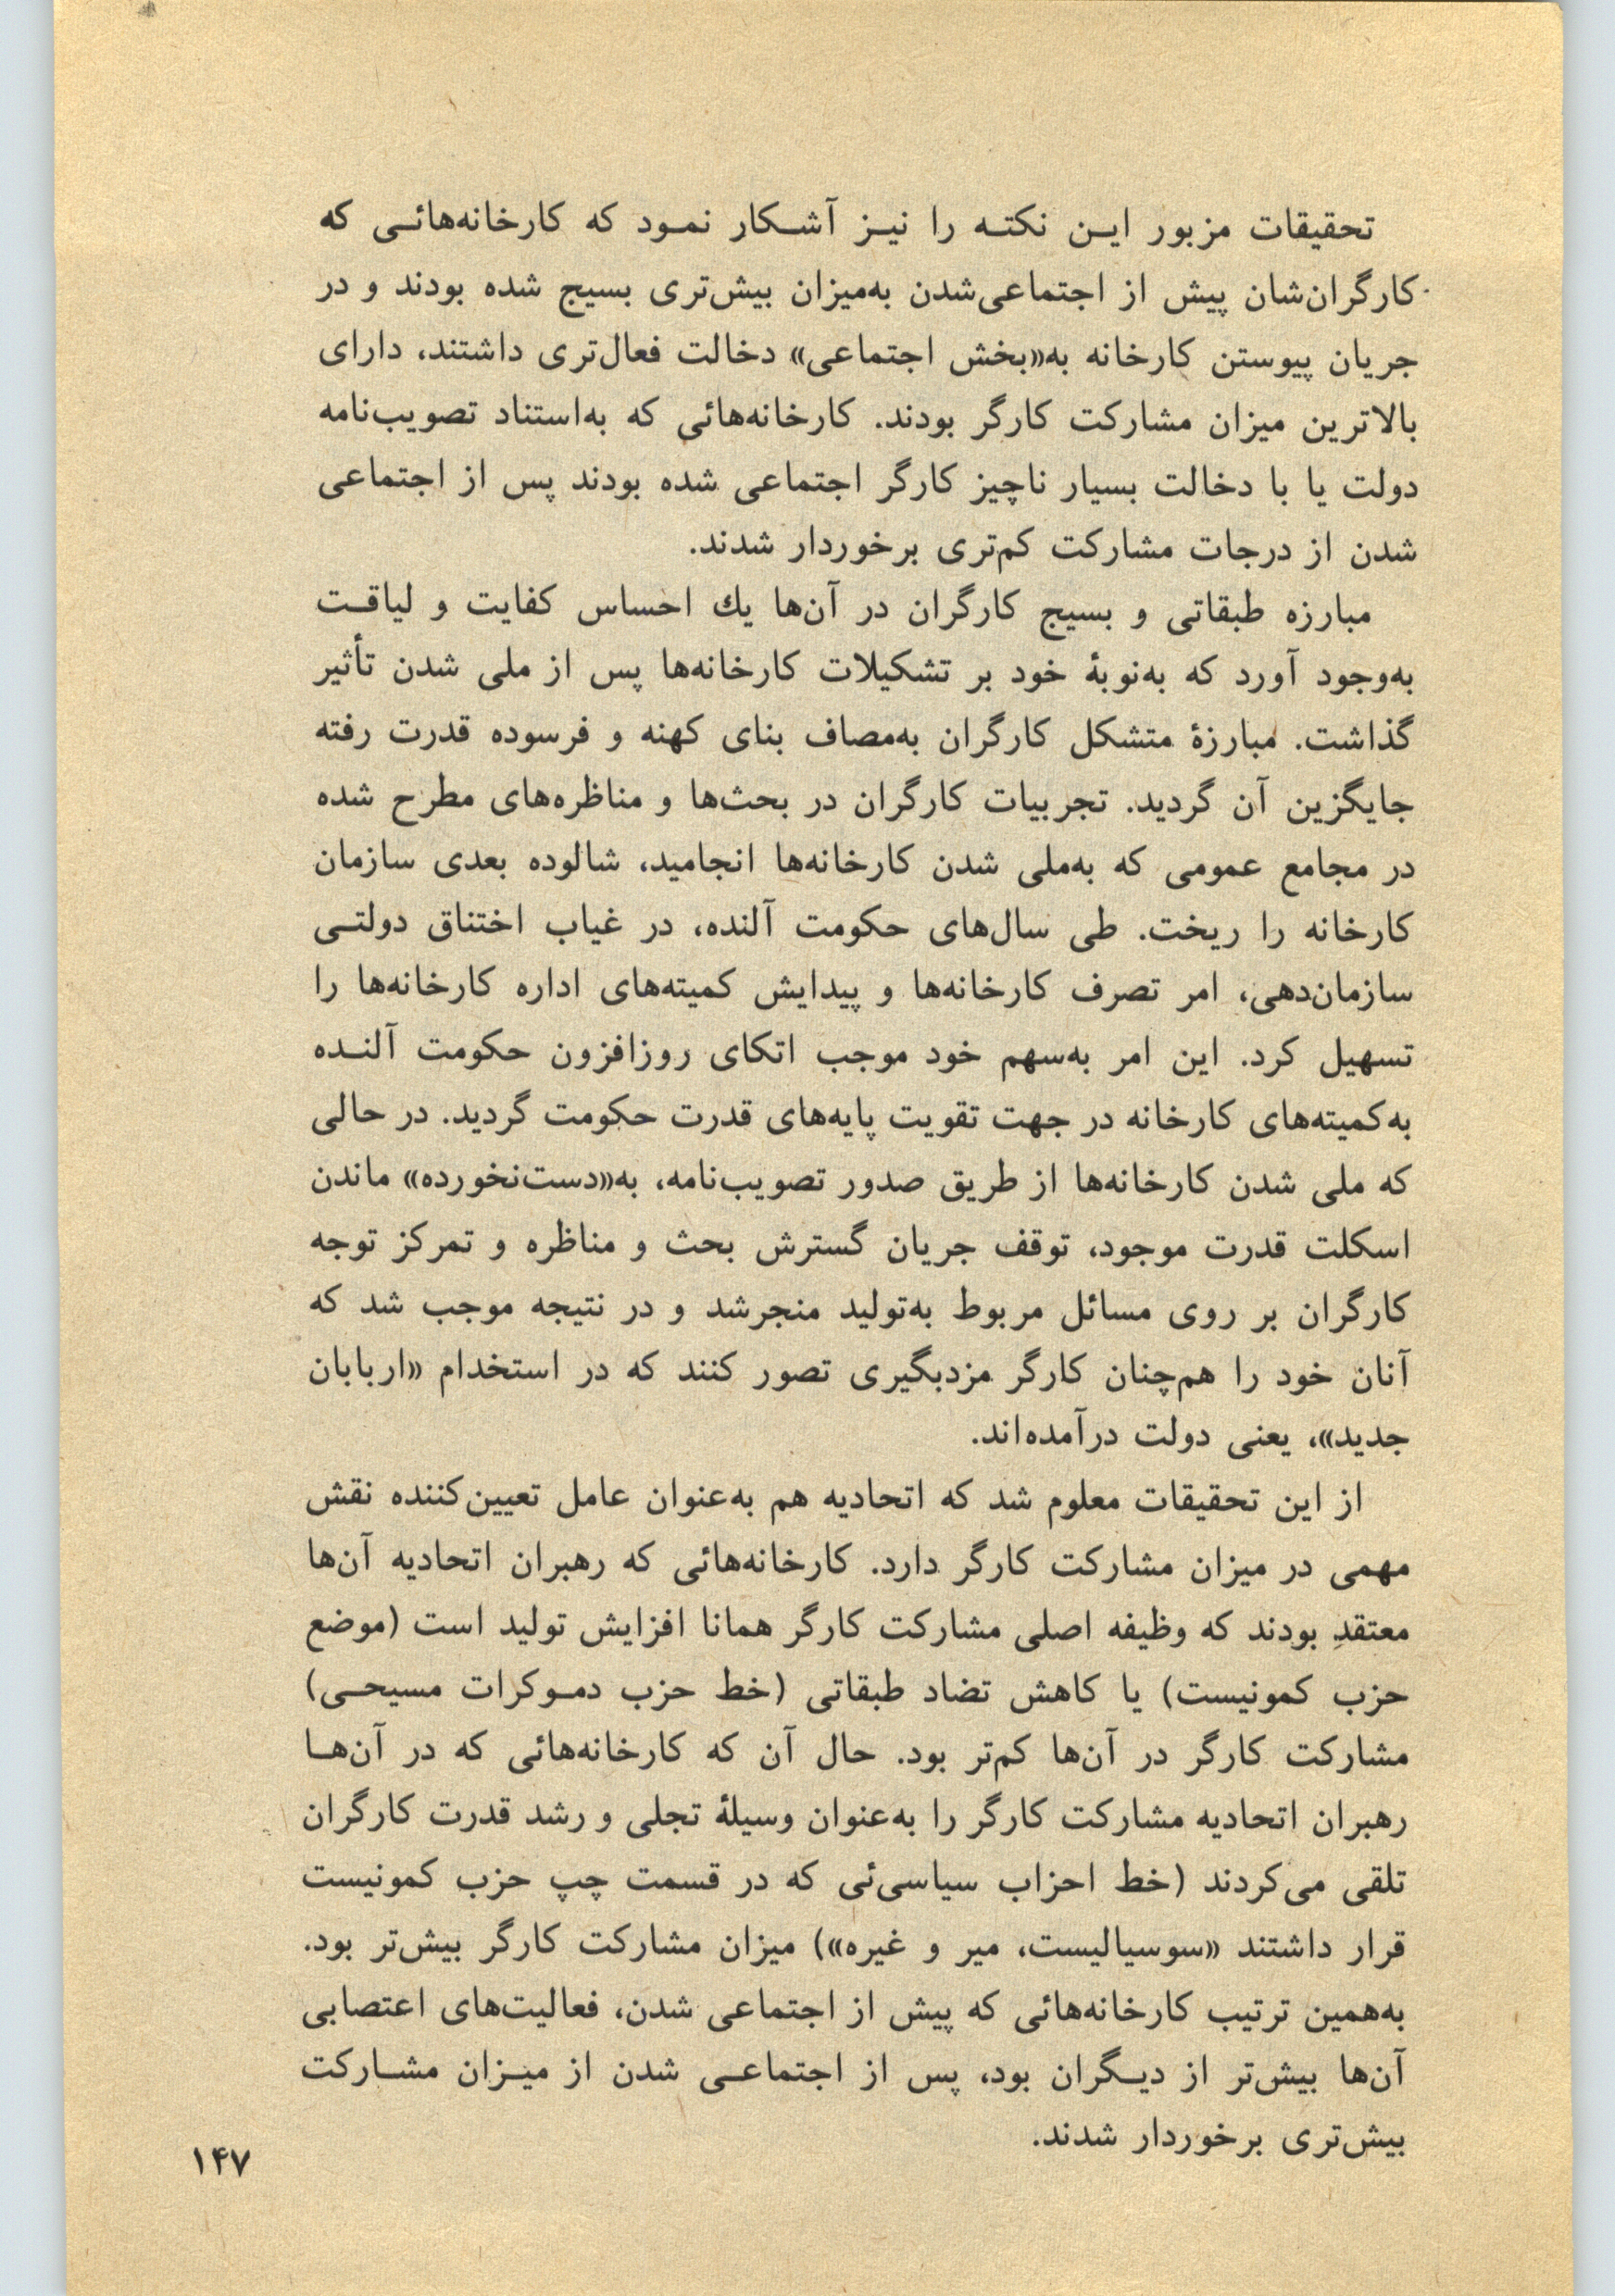 تحقیقات مزبور این نکته را نیز آشکار نمود که کارخانه‌هائی که
کارگران‌شان پیش از اجتماعی‌شدن به‌میزان بیش‌تری بسیج شده بودند و در
جریان پیوستن کارخانه به«بخش اجتماعی» دخالت فعال‌تری داشتند، دارای
بالاترین میزان مشارکت کارگر بودند. کارخانه‌هائی که به‌استناد تصویب‌نامه
دولت یا با دخالت بسیار ناچیز کارگر اجتماعی شده بودند پس از اجتماعی
شدن از درجات مشارکت کم‌تری برخوردار شدند.
مبارزه طبقاتی و بسیج کارگران در آن‌ها یك احساس کفایت و لیاقت
به‌وجود آورد که به‌نوبهٔ خود بر تشکیلات کارخانه‌ها پس از ملی شدن تأثیر
گذاشت. مبارزهٔ متشکل کارگران به‌مصاف بنای کهنه و فرسوده قدرت رفته
جایگزین آن گردید. تجربیات کارگران در بحث‌ها و مناظره‌های مطرح شده
در مجامع عمومی که به‌ملی شدن کارخانه‌ها انجامید، شالوده بعدی سازمان
کارخانه را ریخت. طی سال‌های حکومت آلنده، در غیاب اختناق دولتی
سازمان‌دهی، امر تصرف کارخانه‌ها و پیدایش کمیته‌های اداره کارخانه‌ها را
تسهیل کرد. این امر به‌سهم خود موجب اتکای روزافزون حکومت آلنده
به‌کمیته‌های کارخانه در جهت تقویت پایه‌های قدرت حکومت گردید. در حالی
که ملی شدن کارخانه‌ها از طریق صدور تصویب‌نامه، به«دست‌نخورده» ماندن
اسکلت قدرت موجود، توقف جریان گسترش بحث و مناظره و تمرکز توجه
کارگران بر روی مسائل مربوط به‌تولید منجرشد و در نتیجه موجب شد که
آنان خود را هم‌چنان کارگر مزدبگیری تصور کنند که در استخدام «اربابان
جدید»، یعنی دولت درآمده‌اند.
از این تحقیقات معلوم شد که اتحادیه هم به‌عنوان عامل تعیین‌کننده نقش
مهمی در میزان مشارکت کارگر دارد. کارخانه‌هائی که رهبران اتحادیه آن‌ها
معتقدِ بودند که وظیفه اصلی مشارکت کارگر همانا افزایش تولید است (موضع
حزب کمونیست) یا کاهش تضاد طبقاتی (خط حزب دموکرات مسیحی)
مشارکت کارگر در آن‌ها کم‌تر بود. حال آن که کارخانه‌هائی که در آن‌ها
رهبران اتحادیه مشارکت کارگر را به‌عنوان وسیلهٔ تجلی و رشد قدرت کارگران
تلقی می‌کردند (خط احزاب سیاسی‌ئی که در قسمت چپ حزب کمونیست
قرار داشتند «سوسیالیست، میر و غیره») میزان مشارکت کارگر بیش‌تر بود.
به‌همین ترتیب کارخانه‌هائی که پیش از اجتماعی شدن، فعالیت‌های اعتصابی
آن‌ها بیش‌تر از دیگران بود، پس از اجتماعی شدن از میزان مشارکت
بیش‌تری برخوردار شدند.
۱۴۷